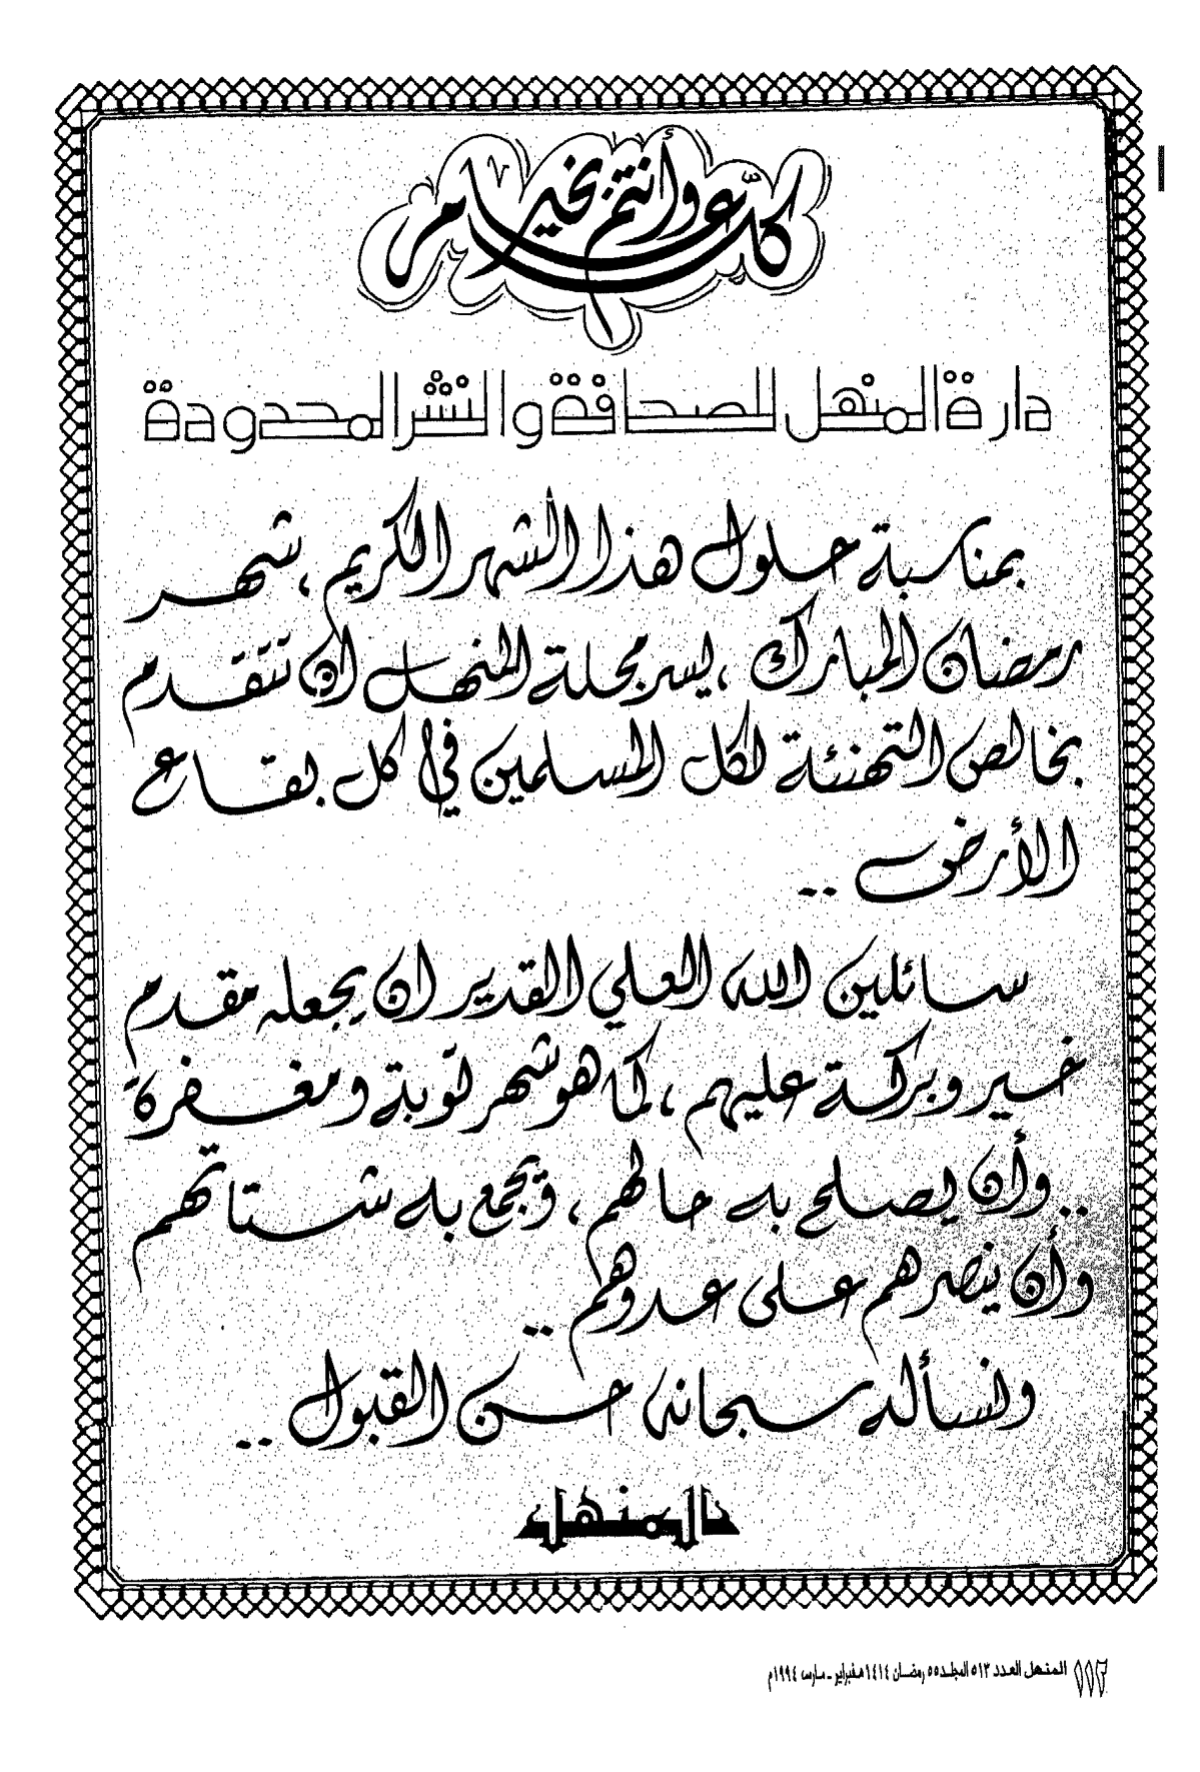 كل عام وأنتم بخير
دارة المنهل للصحافة والنشر المحدودة
بمناسبة حلول هذا الشهر الكريم ، شهر
رمضان المبارك ، يسر مجلة المنهل ان تتقدم
بخالص التهنئة لكل المسلمين في كل بقاع
الأرض ..
سائلين الله العلي القدير ان يجعله مقدم
خير وبركة عليهم ، كما هو شهر توبة ومغفرة
.. وأن يصلح به حالهم ، ويجمع به شتاتهم
وأن ينصرهم على عدوهم ..
ونسأله سبحانه حسن القبول ..
المنهل
المنهل العدد ٥١٣ المجلد ٥٥ رمضان ١٤١٤ هـ فبراير - مارس ١٩٩٤م